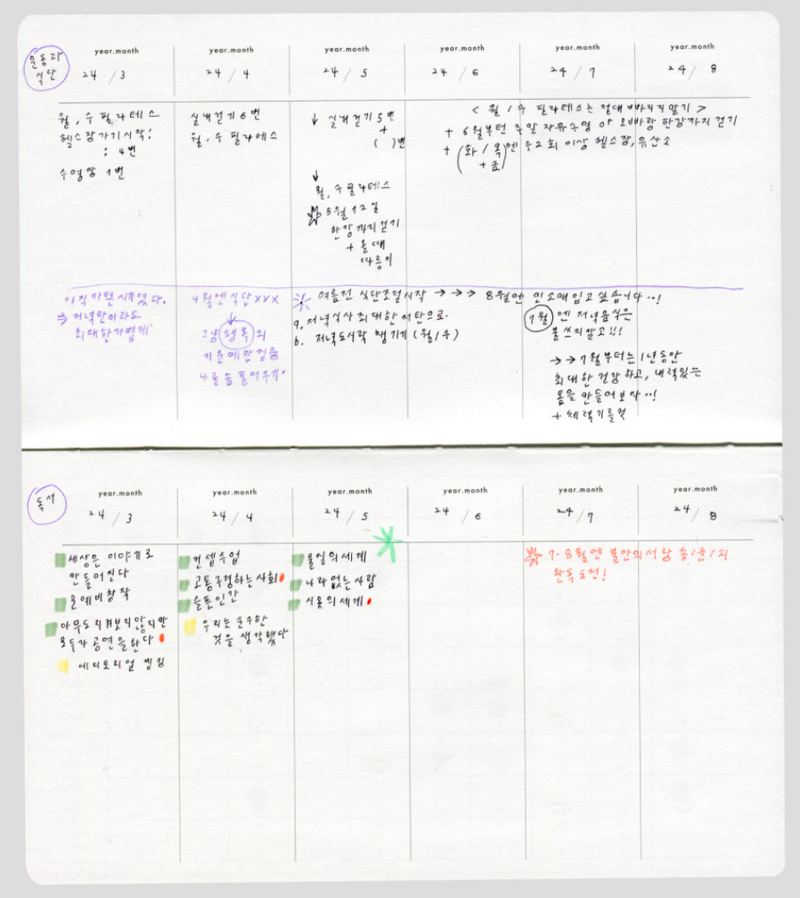 운동과
식단
year.month year.month year.month year.month year.month year.month
24 / 3 24 / 4 24 / 5 24 / 6 24 / 7 24 / 8
월, 수 필라테스
헬스장가기시작!
: 4번
수영장 1번
실내걷기 6번
월, 수 필라테스
↓ 실내걷기 5번
+
( )번
↓
월, 수 필라테스
5월 12일
한강까지걷기
+ 올때
따릉이
< 월/수 필라테스는 절대 빠지지않기 >
+ 6월부턴 주말 자유수영 or 오빠랑 한강까지 걷기
+ (화/목)엔 주2회 이상 헬스장, 유산소
+금
아직 바쁜시기였다.
⇒ 저녁만이라도
최대한가볍게
4월엔 식단 xxx
↓
그냥 행복의
기운에만 집중
여름전 식단조절시작 → → → 8월엔 민소매입고싶습니다..!
a. 저녁식사 최대한 저탄으로.
b. 저녁도시락 챙기기 (월/수)
7월 엔 저녁음식은
불쓰지않고!!!
→→ 7월부터는 1년동안
최대한 건강하고, 내력있는
몸을 만들어보자..!
+ 체력기를것
독서
year.month year.month year.month year.month year.month year.month
24 / 3 24 / 4 24 / 5 24 / 6 24 / 7 24 / 8
세상은 이야기로
만들어졌다
문예비창작
아무도지켜보지않지만
모두가공연을한다
에디토리얼 씽킹
컨셉수업
고통구경하는사회
슬픈인간
우리는순수한
것을생각했다
물질의세계
나라없는사람
시옷의세계
7-8월엔 불안의서 남송1권/의
완독도전!